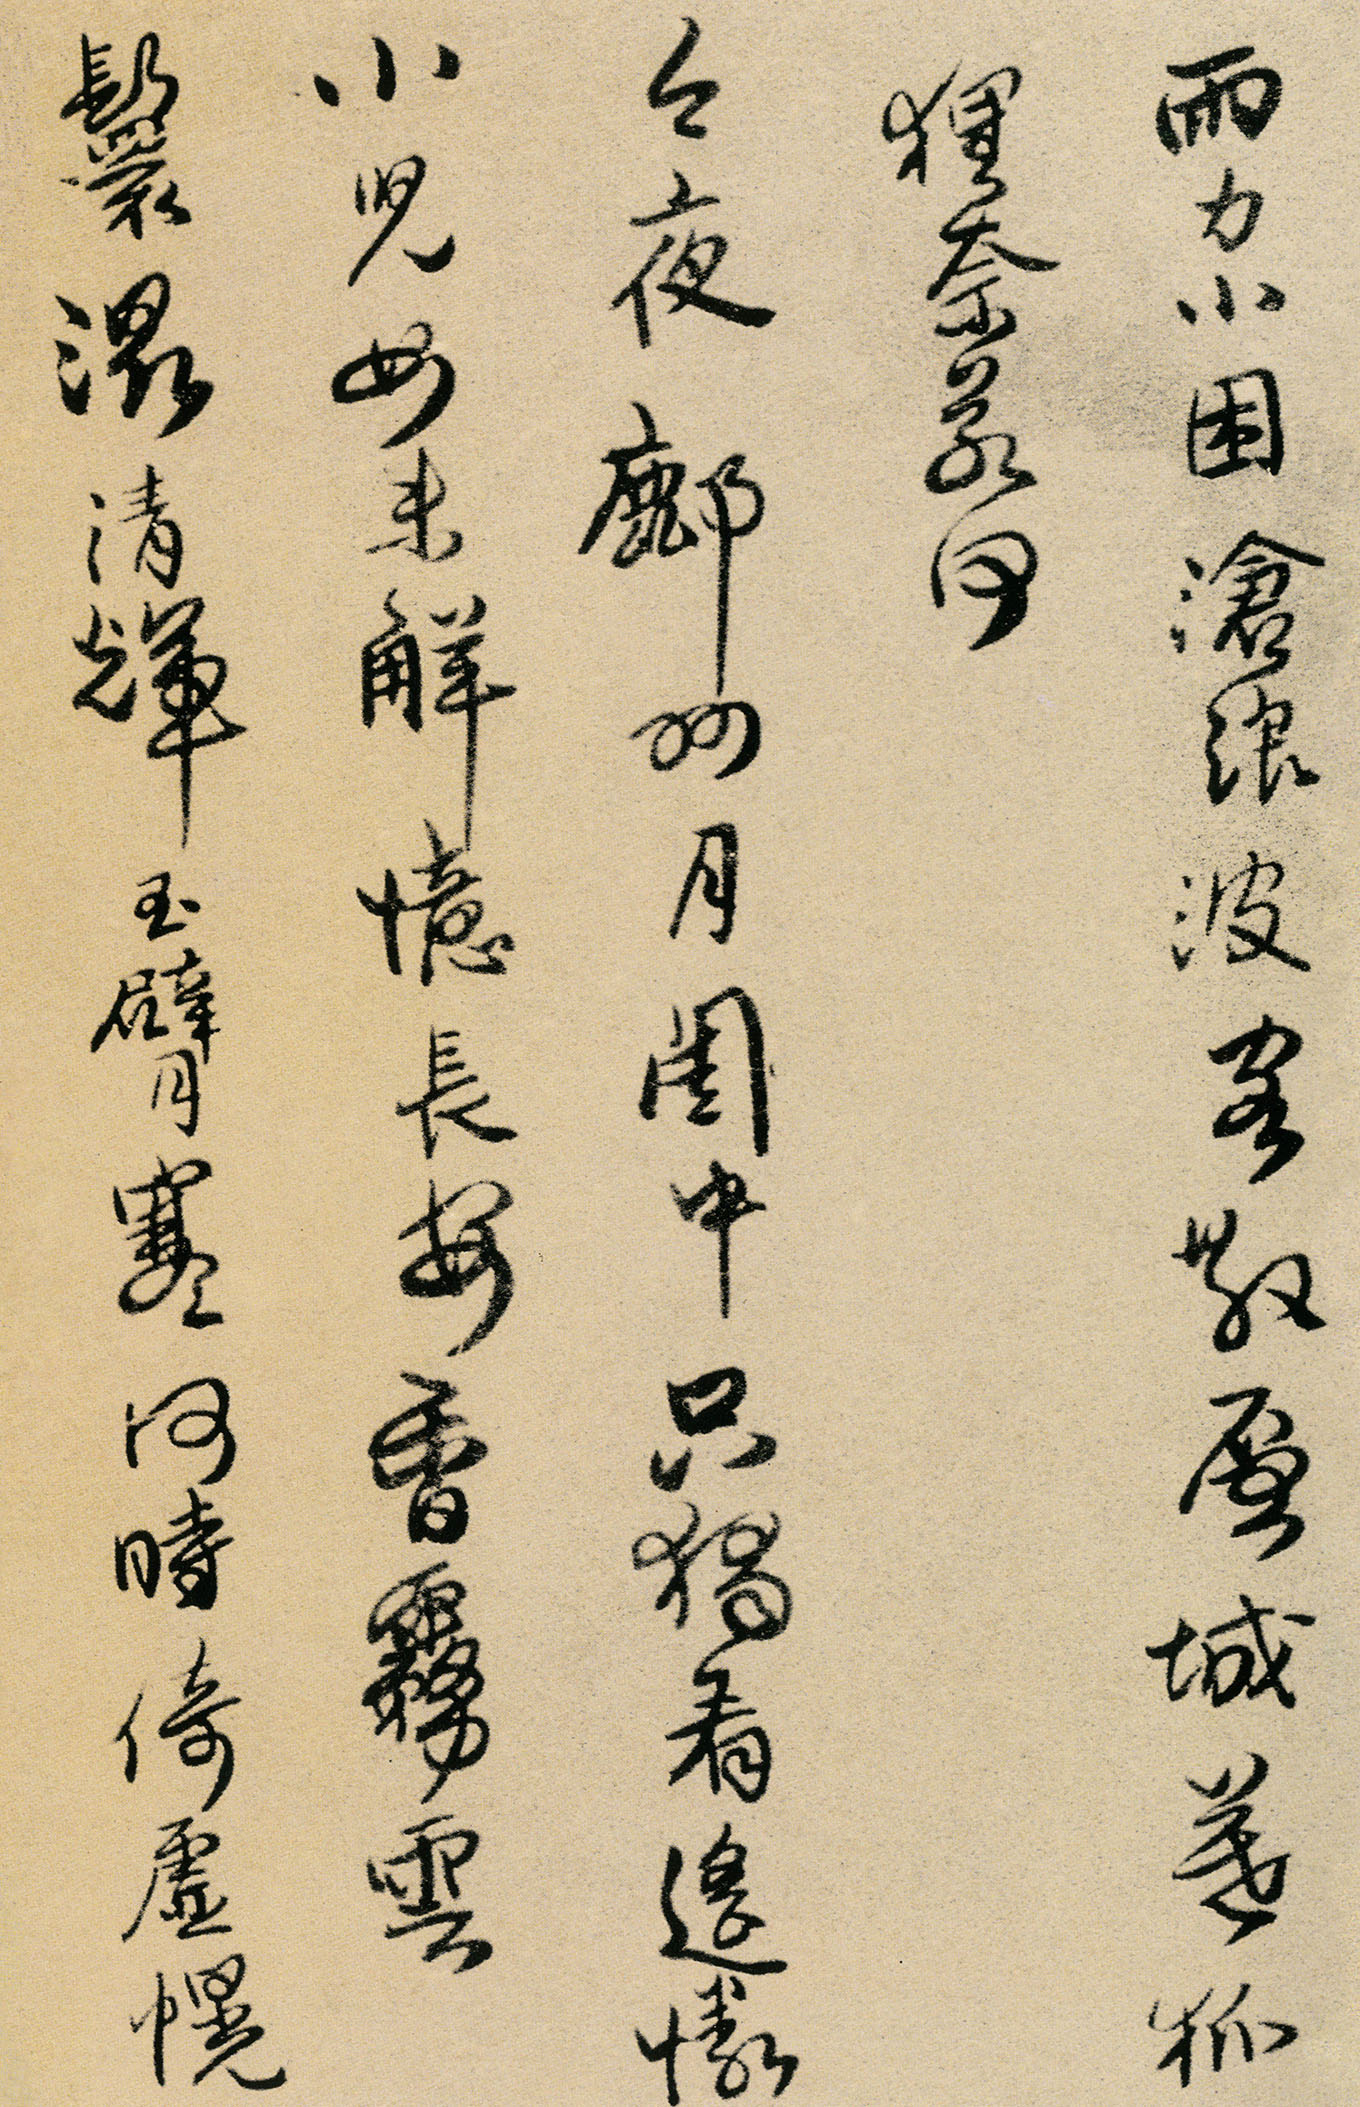 雨力小困滄浪波客散層城暮狐
狸奈若何
今夜鄜州月閨中只獨看遙憐
小兒女未解憶長安香霧雲
鬟濕清輝玉臂寒何時倚虛幌